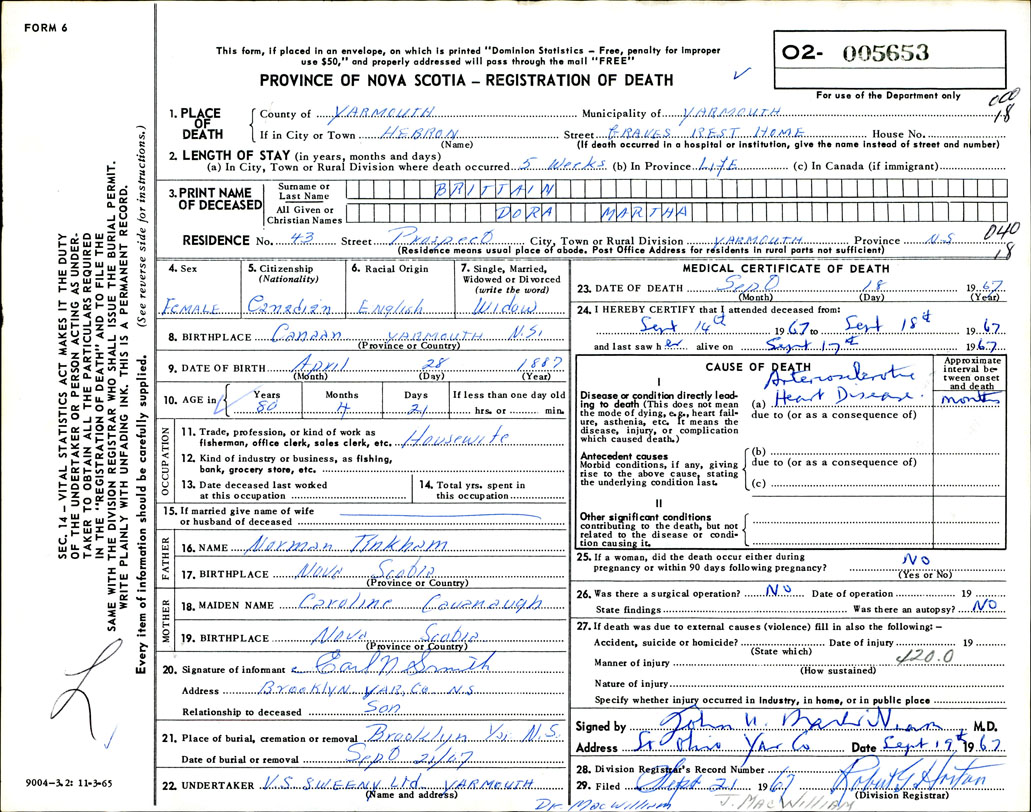 FORM 6
This form, if placed in an envelope, on which is printed "Dominion Statistics – Free, penalty for improper
use $50," and properly addressed will pass through the mail "FREE"
PROVINCE OF NOVA SCOTIA – REGISTRATION OF DEATH
02- 005653
For use of the Department only
SEC. 14 – VITAL STATISTICS ACT MAKES IT THE DUTY
OF THE UNDERTAKER OR PERSON ACTING AS UNDER-
TAKER TO OBTAIN ALL THE PARTICULARS REQUIRED
IN THE "REGISTRATION OF DEATH" AND TO FILE THE
SAME WITH THE DIVISION REGISTRAR WHO SHALL ISSUE THE BURIAL PERMIT.
WRITE PLAINLY WITH UNFADING INK. THIS IS A PERMANENT RECORD.
Every item of information should be carefully supplied. (See reverse side for instructions.)
1. PLACE OF DEATH
County of YARMOUTH Municipality of YARMOUTH
18
If in City or Town HEBRON Street GRAVES REST HOME House No.
(Name) (If death occurred in a hospital or institution, give the name instead of street and number)
2. LENGTH OF STAY (in years, months and days)
(a) In City, Town or Rural Division where death occurred 5 Weeks (b) In Province LIFE (c) In Canada (if immigrant)
3. PRINT NAME OF DECEASED
Surname or Last Name BRITTAIN
All Given or Christian Names DORA MARTHA
RESIDENCE No. 43 Street Prospect City, Town or Rural Division YARMOUTH Province N.S
040
18
(Residence means usual place of abode. Post Office Address for residents in rural parts not sufficient)
4. Sex
Female
5. Citizenship
(Nationality)
Canadian
6. Racial Origin
English
7. Single, Married,
Widowed or Divorced
(write the word)
Widow
8. BIRTHPLACE Canaan YARMOUTH N.S.
(Province or Country)
9. DATE OF BIRTH April 28 1887
(Month) (Day) (Year)
10. AGE in Years 80 Months 4 Days 21 If less than one day old
hrs. or min.
OCCUPATION
11. Trade, profession, or kind of work as
fisherman, office clerk, sales clerk, etc. Housewife
12. Kind of industry or business, as fishing,
bank, grocery store, etc.
13. Date deceased last worked
at this occupation
14. Total yrs. spent in
this occupation
15. If married give name of wife
or husband of deceased
FATHER
16. NAME Norman Tinkham
17. BIRTHPLACE Nova Scotia
(Province or Country)
MOTHER
18. MAIDEN NAME Caroline Cavanaugh
19. BIRTHPLACE Nova Scotia
(Province or Country)
20. Signature of informant Earl N Smith
Address Brooklyn YAR. Co N.S
Relationship to deceased Son
21. Place of burial, cremation or removal Brooklyn Yar N.S.
Date of burial or removal Sept 21/67
22. UNDERTAKER V.S. SWEENY Ltd YARMOUTH
(Name and address)
9004-3.2: 11-3-65
MEDICAL CERTIFICATE OF DEATH
23. DATE OF DEATH Sept 18 1967
(Month) (Day) (Year)
24. I HEREBY CERTIFY that I attended deceased from:
Sept 14th 1967 to Sept 18th 1967
and last saw her alive on Sept 17th 1967
CAUSE OF DEATH
Approximate
interval be-
tween onset
and death
I
Disease or condition directly lead-
ing to death (This does not mean
the mode of dying, e.g., heart fail-
ure, asthenia, etc. It means the
disease, injury, or complication
which caused death.)
Arteriosclerotic
(a) Heart Disease. months
due to (or as a consequence of)
Antecedent causes
Morbid conditions, if any, giving
rise to the above cause, stating
the underlying condition last.
(b)
due to (or as a consequence of)
(c)
II
Other significant conditions
contributing to the death, but not
related to the disease or condi-
tion causing it.
25. If a woman, did the death occur either during
pregnancy or within 90 days following pregnancy? No
(Yes or No)
26. Was there a surgical operation? No Date of operation 19
State findings Was there an autopsy? NO
27. If death was due to external causes (violence) fill in also the following: –
Accident, suicide or homicide? Date of injury 19
(State which)
420.0
Manner of injury
(How sustained)
Nature of injury
Specify whether injury occurred in industry, in home, or in public place
Signed by John M. MacWilliam M.D.
Address Ohio Yar Co Date Sept 19th 1967
28. Division Registrar's Record Number
29. Filed Sept 21 1967 Robert G Horton
(Division Registrar)
Dr MacWilliam J. MACWILLIAM